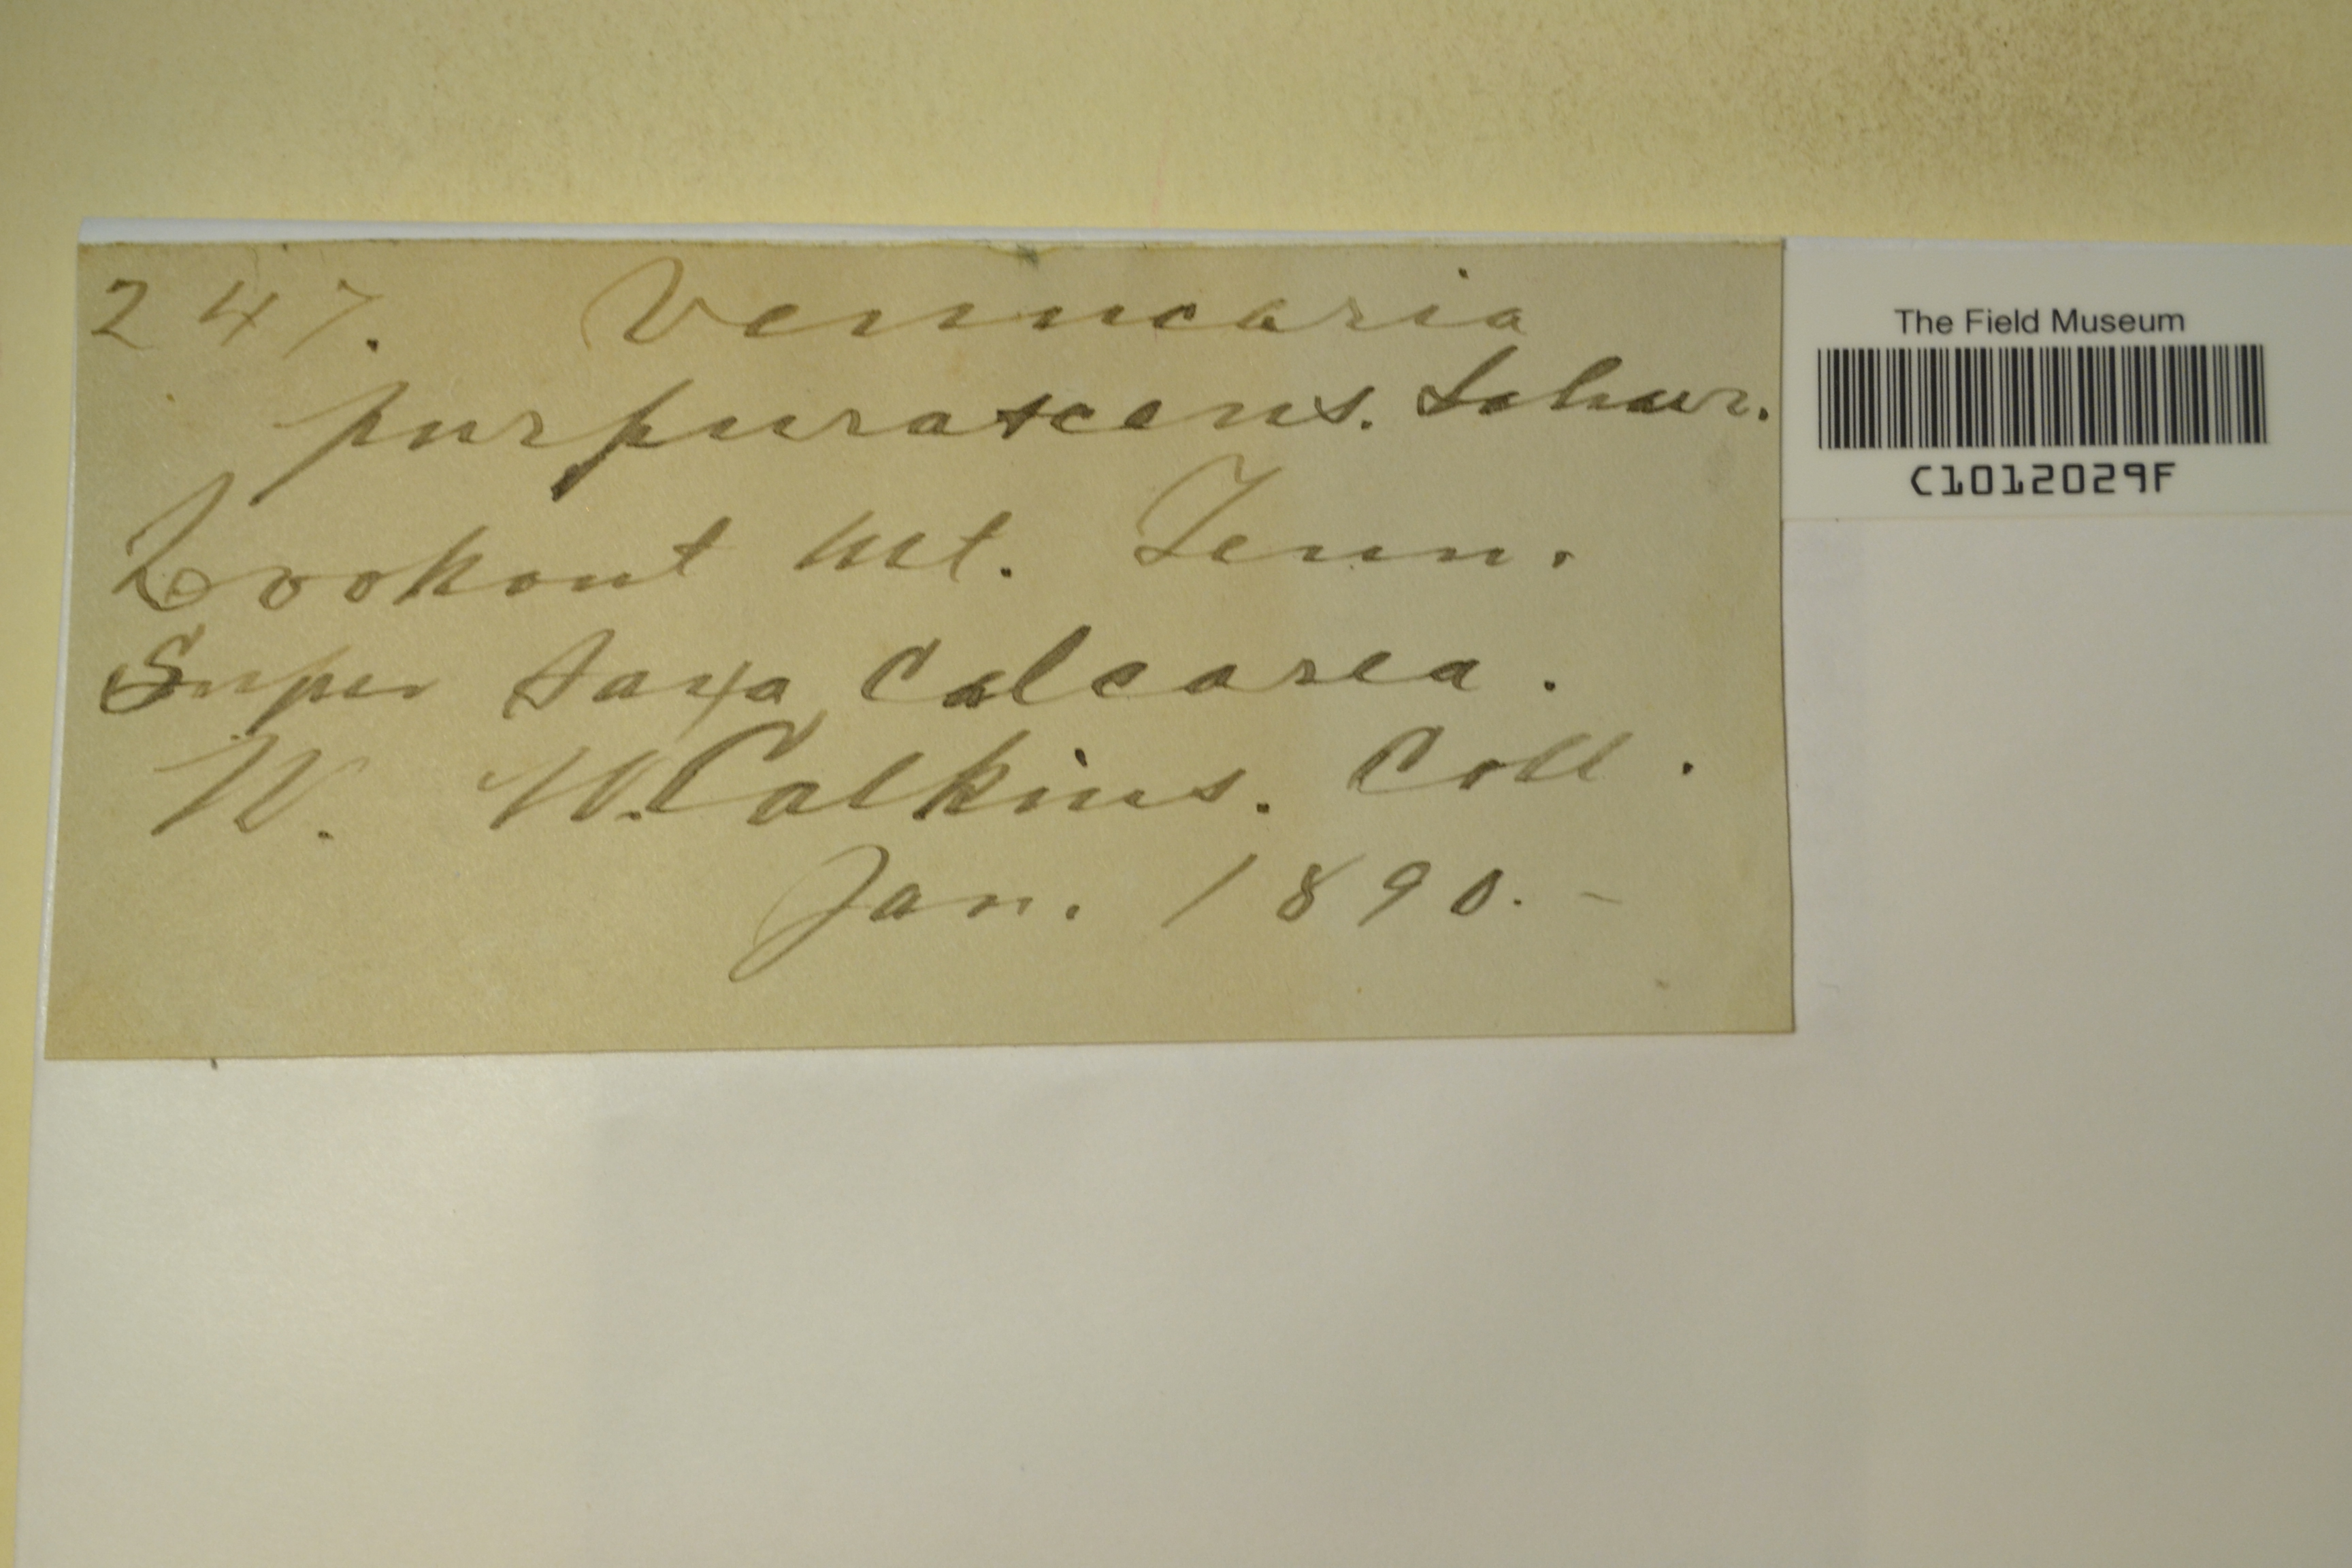 247. Verrucaria
purpurascens. Schaer.
Lookout Mt. Tenn.
Super Saxa Calcarea.
W. W. Calkins. Coll.
Jan. 1890. -
The Field Museum
C1012029F